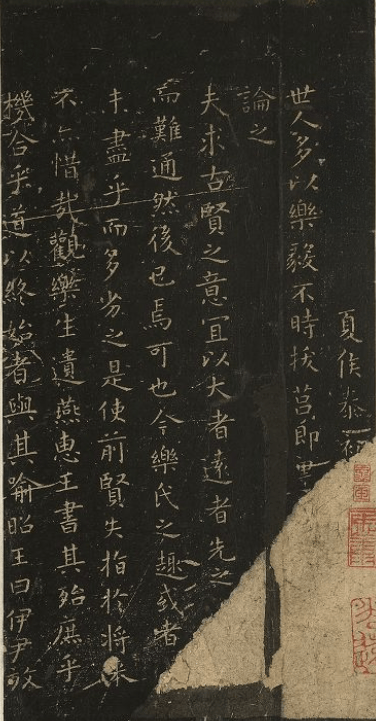 夏侯泰初
世人多以樂毅不時拔莒即墨
論之
夫求古賢之意宜以大者遠者先之
而難通然後已焉可也今樂氏之趣或者
未盡乎而多劣之是使前賢失指於將來
不亦惜哉觀樂生遺燕惠王書其殆庶乎
機合乎道以終始者與其喻昭王曰伊尹放